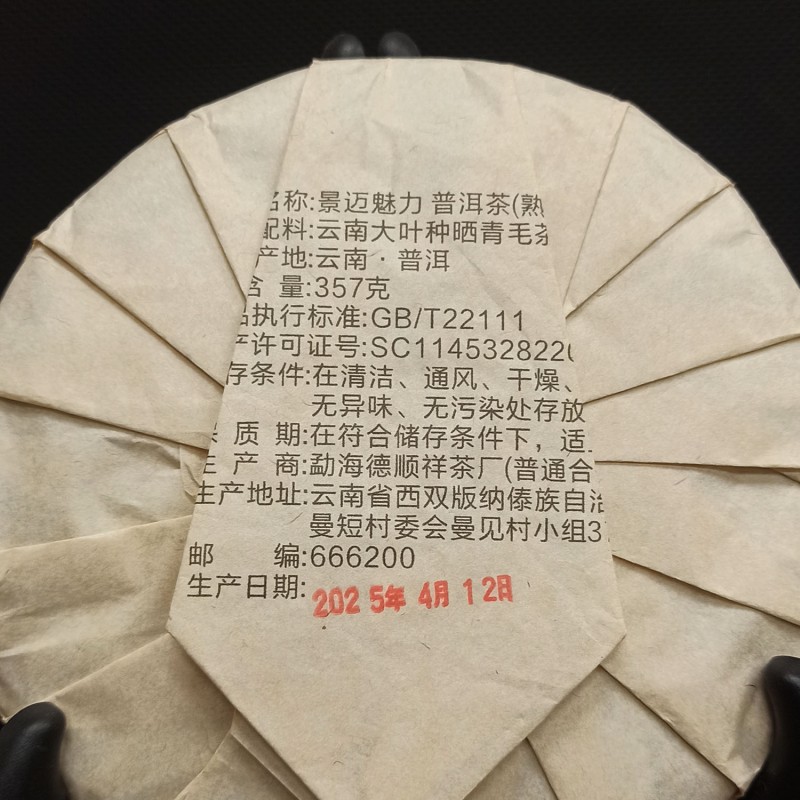 名称:景迈魅力 普洱茶(熟
配料:云南大叶种晒青毛茶
产地:云南·普洱
含 量:357克
品执行标准:GB/T22111
产许可证号:SC1145328220
存条件:在清洁、通风、干燥、
无异味、无污染处存放
保 质 期:在符合储存条件下，适
生 产 商:勐海德顺祥茶厂(普通合
生产地址:云南省西双版纳傣族自治
曼短村委会曼见村小组3
邮 编:666200
生产日期:2025年4月12日